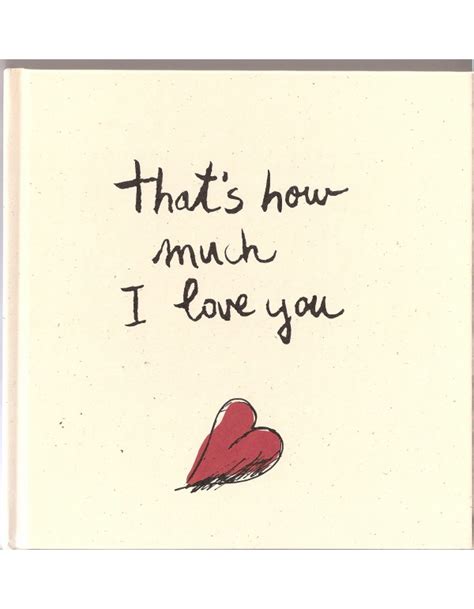 that's how
much
I love you